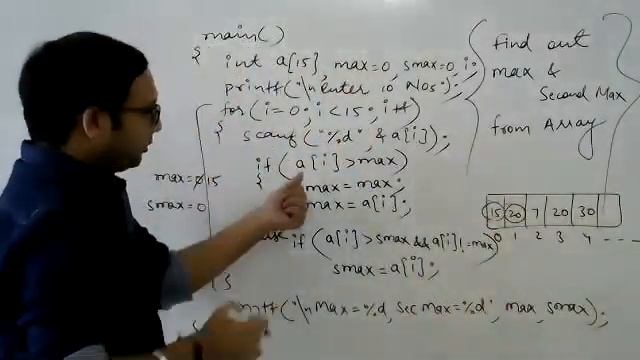 main()
{ int a[15], max=0, smax=0, i;
printf("\nEnter 10 Nos");
for(i=0; i<15; i++)
{ scanf("%d", &a[i]);
if(a[i]>max)
{ smax=max;
max=a[i];
else if(a[i]>smax && a[i]!=max)
smax=a[i];
}
printf("\nMax=%d, Sec Max=%d", max, smax);
max=0 15
smax=0
Find out
max &
Second Max
from Array
15 20 7 20 30
0 1 2 3 4 ----